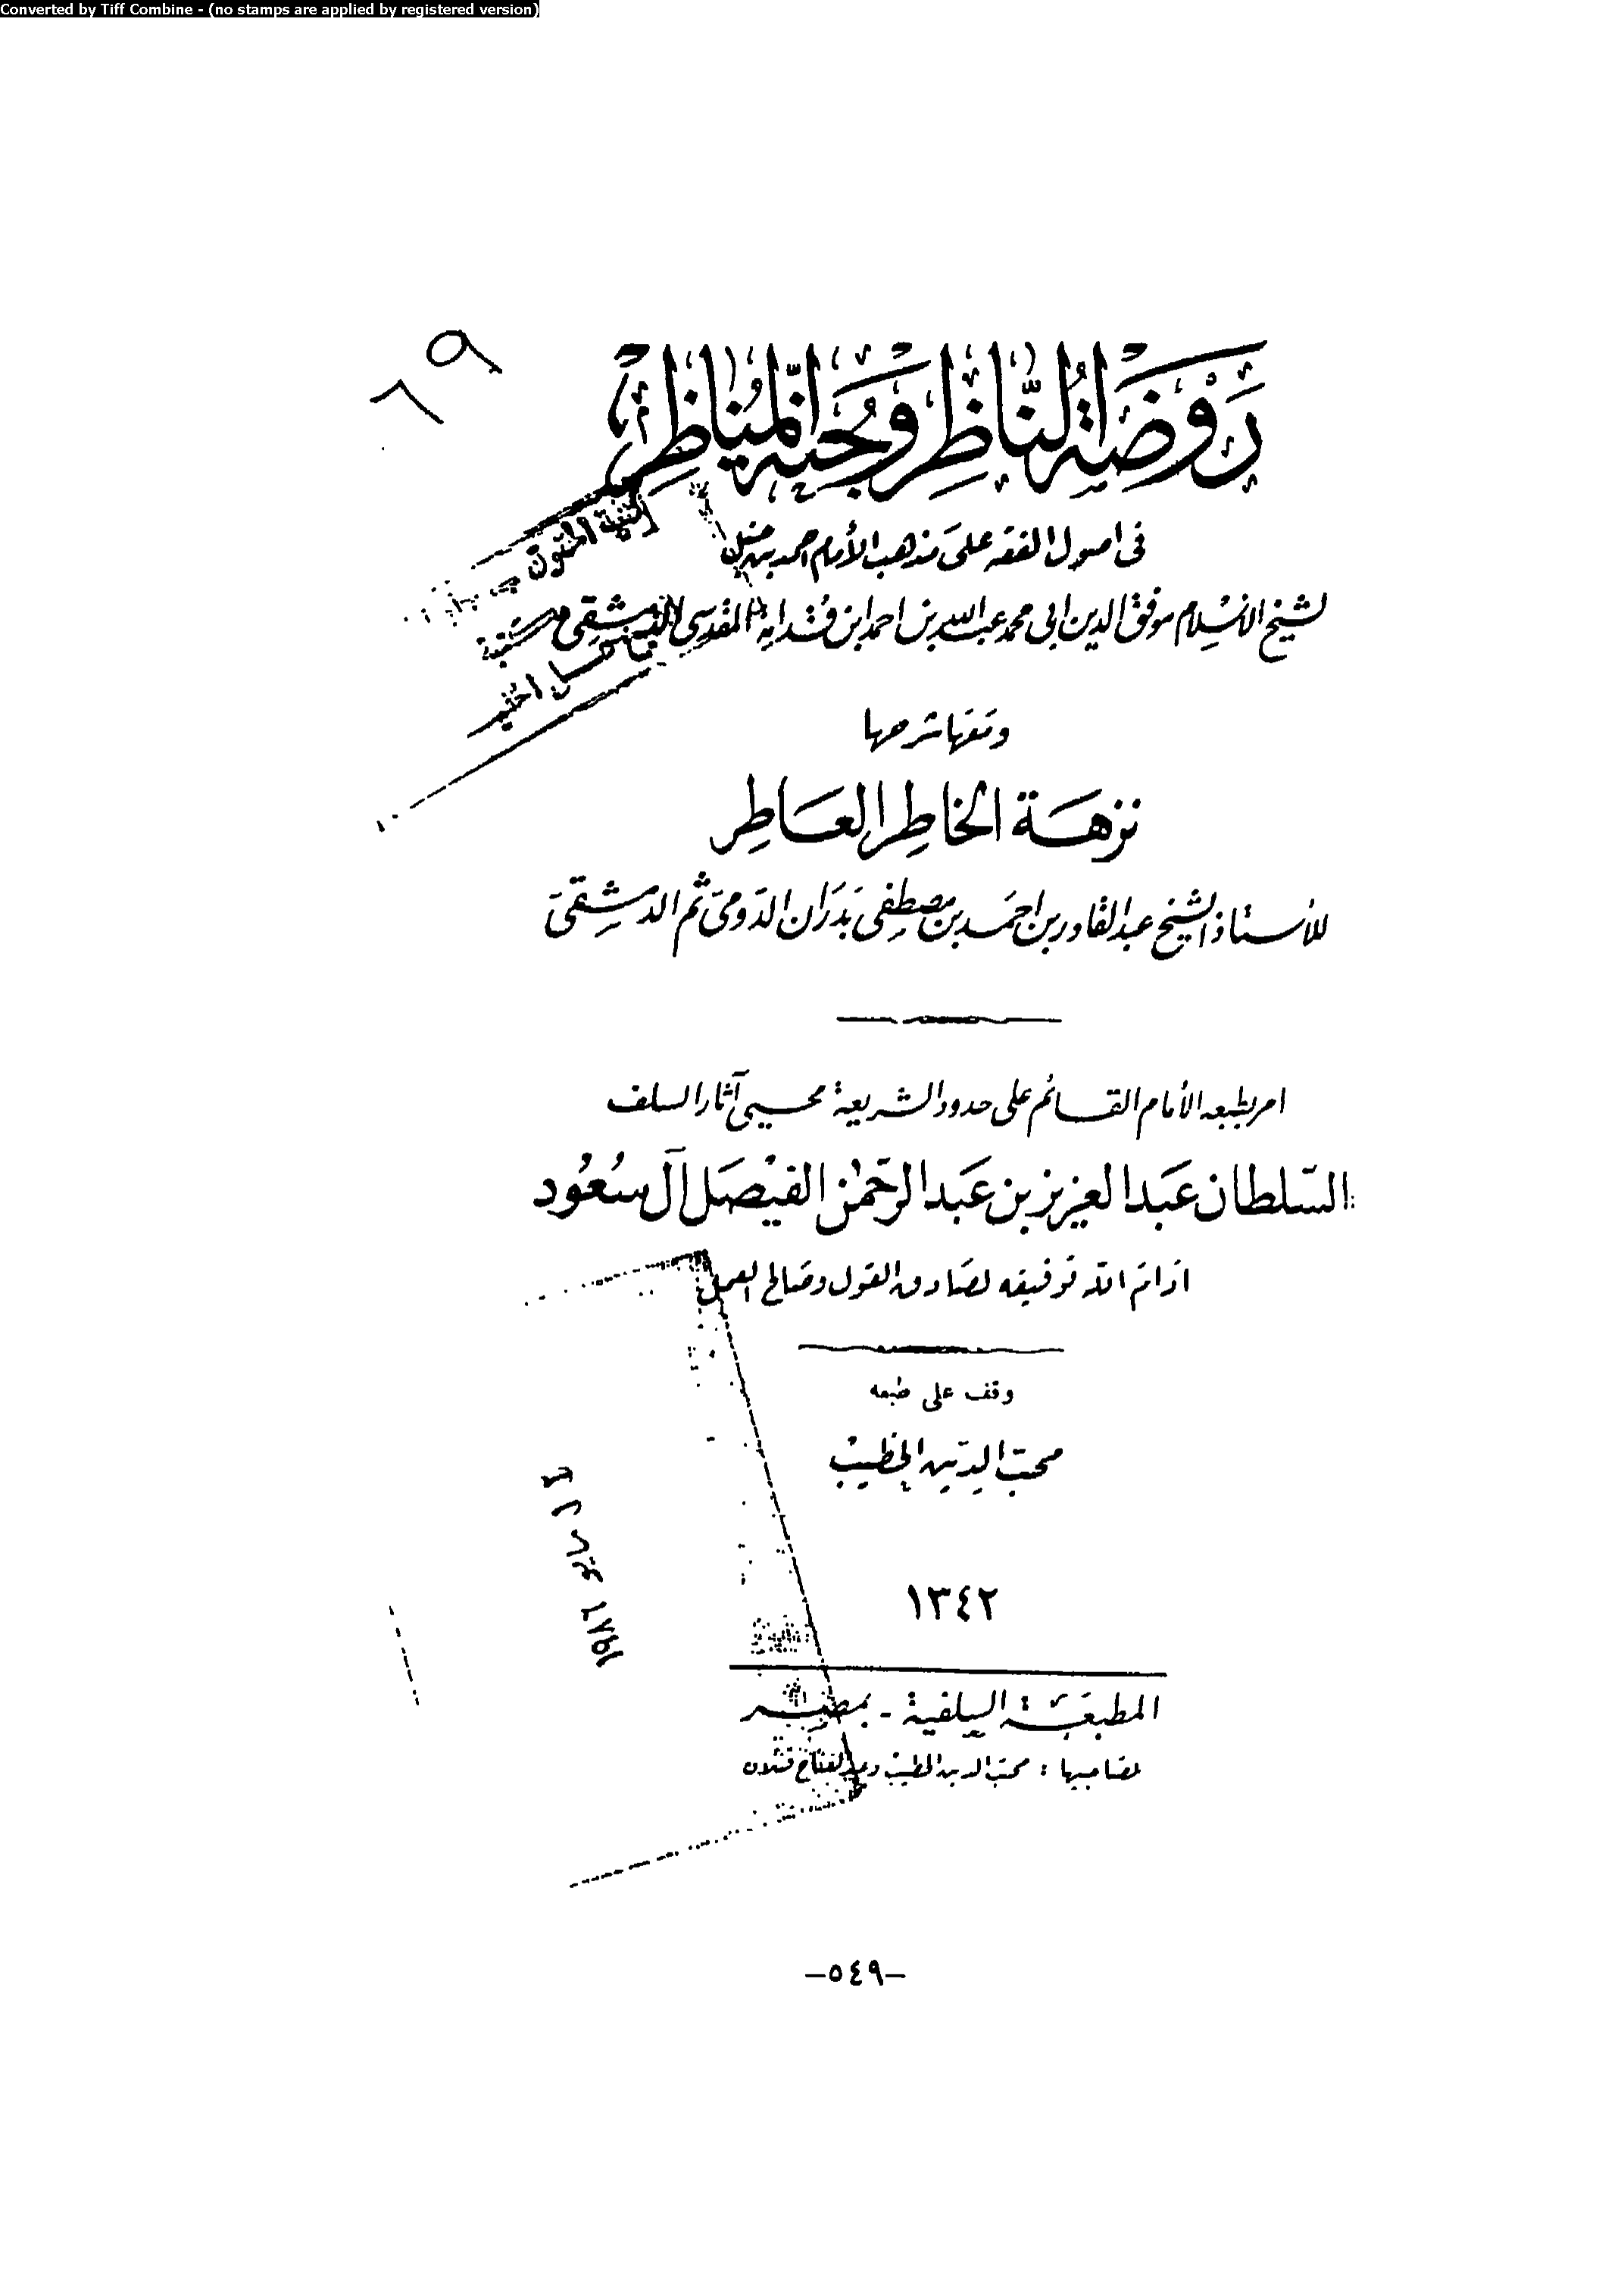 Converted by Tiff Combine - (no stamps are applied by registered version)
٦٩
رَوْضَةُ النَّاظِرِ وَجُنَّةُ الْمُنَاظِرِ
فى اصول الفقه علىَ مذهب الأمام احمد بن حنبل
لشيخ الإسْلام موفق الدين ابى محمد عبد الله بن احمد ابن قُدامة المقدسى الدمشقِى
ومَعَها شرحها
نزهَة الخاطِر العَاطِر
للأستاذ الشيخ عبد القادر بن احمَد بن مصطفى بَدَران الدّومىّ ثم الدمشِقىّ
امر بطبعه الأمام القائم على حدود الشريعة محيى آثار السلف
السّلطان عَبد العزيز بن عَبد الرّحمٰن الفيْصَل آل سُعُود
ادامَ الله توفيقه لصَادق القول وصَالح العمل
وقف على طبعه
محبّ الدّين الخطيبْ
١٣٤٢
المطبعَة السلفية - بمصر
لصَاحبيها : محبّ الدين الخطيبْ وعبد الفتاح قتلان
–٥٤٩–